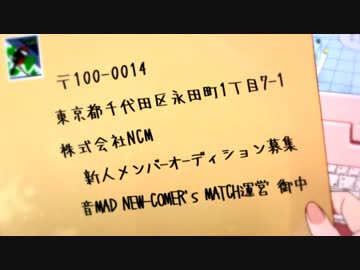 〒100-0014
東京都千代田区永田町1丁目7-1
株式会社NCM
新人メンバーオーディション募集
音MAD NEW-COMER's MATCH運営 御中